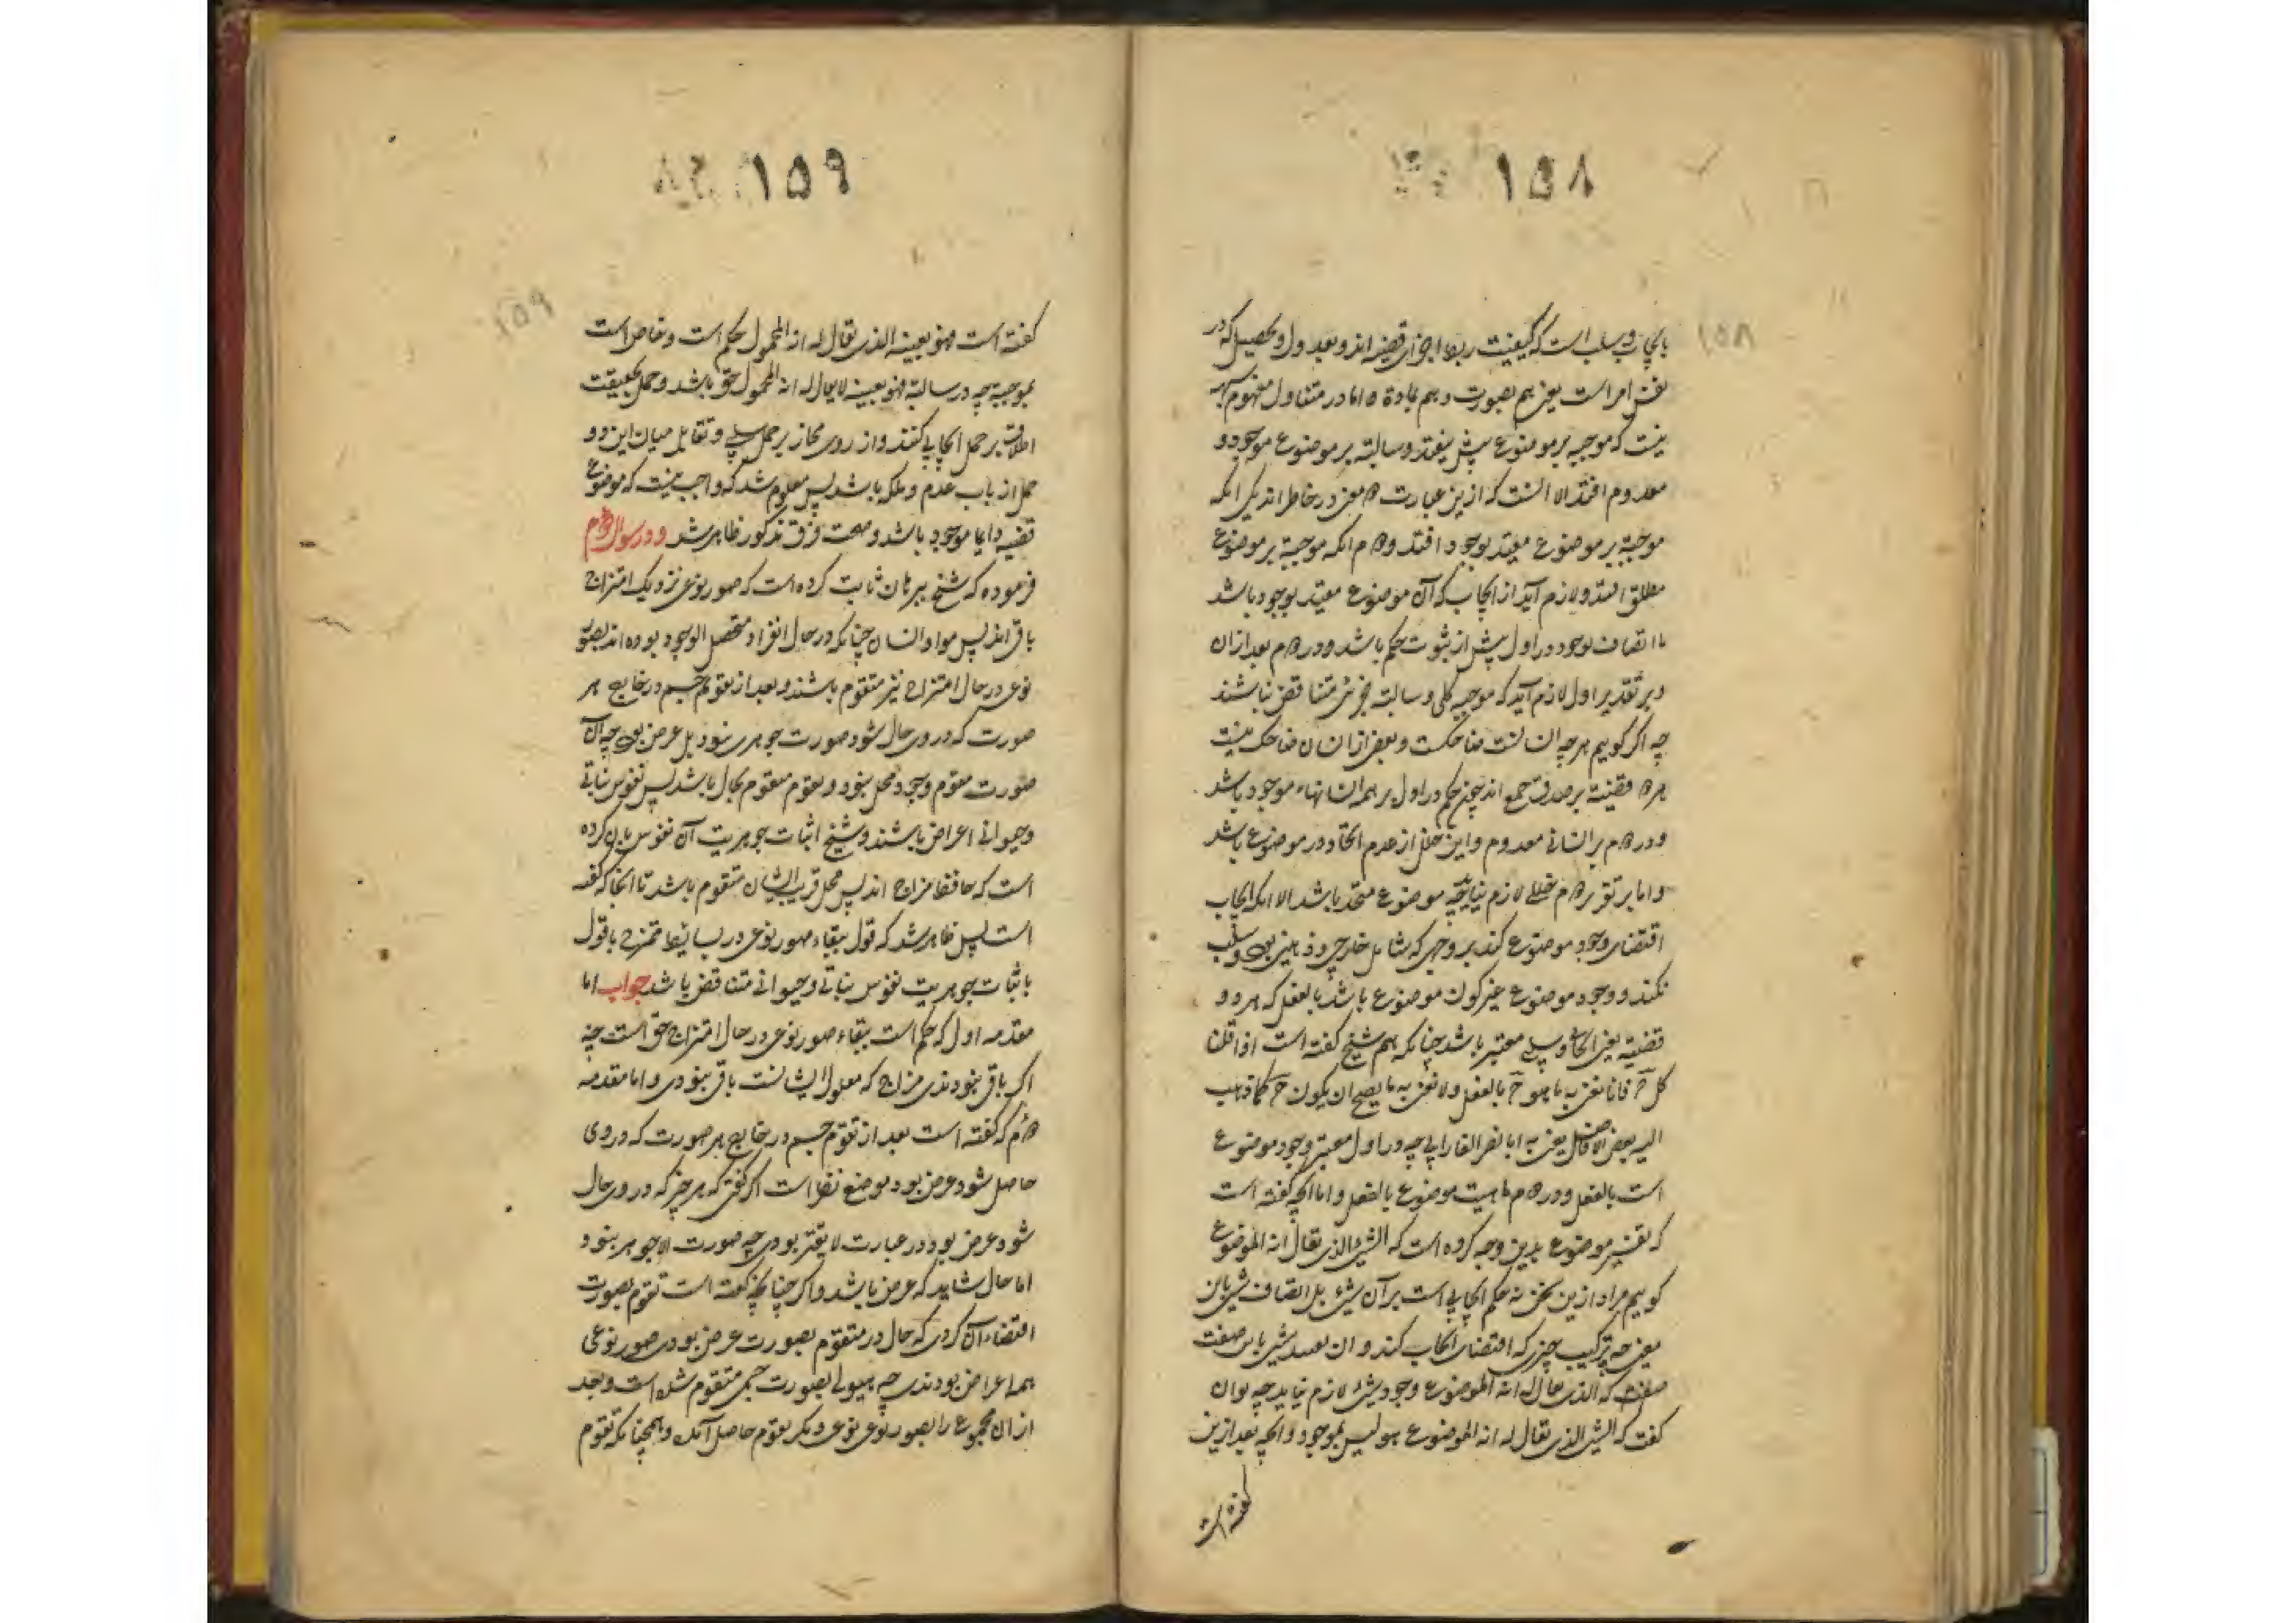 ۱۵۸
۱۵۸
بایجاب و سلب است که کیفیت ربط اجزای قضیه اند و بعدول و تحصیل که در
نفس امر است یعنی هم بصورت و هم بمادة اما در متناول مفهوم
نیست که موجبه بر موضوع بیش نیفتد و سالبه بر موضوع موجود و
معدوم افتد الا آنست که ازین عبارت معنی در خاطر اند یکی آنکه
موجبه بر موضوع مقید بوجود افتد و دوم آنکه موجبه بر موضوع
مطلق افتد و لازم آید از ایجاب که آن موضوع مقید بوجود باشد
با اتصاف بوجود در اول پیش از ثبوت حکم باشد و در دوم بعد ازان
و بر تقدیر اول لازم آید که موجبه کلی و سالبه جزئی متناقض نباشند
چه اگر گوییم هرچه انسانست ضاحکست و بعضی از انسان ضاحک نیست
هر دو قضیه بر صدق جمع اند چون حکم در اول بر همه انسانهاء موجود باشد
و در دوم بر انسانی معدوم و این خلل از عدم اتحاد در موضوع باشد
و اما بر تقریر دوم خللی لازم نیاید چه موضوع متحد باشد الا آنکه ایجاب
اقتضای وجود موضوع کند بر وجهی که شامل خارجی و ذهنی بود و سلب
نکند و وجود موضوع غیر کون موضوع باشد بالفعل که هر دو
قضیه یعنی ایجابی و سلبی معتبر باشد چنانکه هم شیخ گفته است اذا قلنا
کل ج فانا نعنی به ما هو ج بالفعل و لا نعنی به ما یصح ان یکون ج کما ذهب
الیه بعض الافاضل یعنی به ابا نصر الفارابی چه در اول معتبر وجود موضوع
است بالفعل و در دوم ماهیت موضوع بالفعل و اما آنچه گفته است
که تفسیر موضوع بدین وجه کرده است که الشیء الذی یقال انه الموضوع
گوییم مراد ازین سخن نه حکم ایجابی است بر آن شیء بل اتصاف شیء بان
معنی چه ترکیب چیزی که اقتضای ایجاب کند و ان تقیید شیء باین صفت
که الذی یقال له انه الموضوع وجود شیء لازم نیاید چه توان
گفت که الشیء الذی یقال له انه الموضوع هو لیس بموجود و آنچه بعد ازین
گفته است
۱۵۹
۱۵۹
گفته است فهو بعینه الذی یقال له انه المحمول حکم است و خاص است
بموجبه چه در سالبه فهو بعینه لا یقال له انه المحمول حق باشد و حمل بحقیقت
اطلاق بر حمل ایجابی کنند و از روی مجاز بر حمل سلبی و تقابل میان این دو
حمل از باب عدم و ملکه باشد پس معلوم شد که واجب نیست که موضوع
قضیه دایما موجود باشد و صحت فرق مذکور ظاهر شد و در سوال دوم
فرموده که شیخ ببرهان ثابت کرده است که صور نوعی نزدیک امتزاج
باقی اند پس مواد انسان چنانکه در حال انفراد متحصل الوجود بوده اند بصور
نوعی در حال امتزاج نیز متقوم باشند و بعد از تقوم جسم در خارج هر
صورت که در وی حال شود صورت جوهری نبود بل عرض بود چه آن
صورت مقوم وجود محل نبود و مقوم متقوم بحال باشد پس نفوس نباتی
و حیوانی اعراض باشند و شیخ اثبات جوهریت آن نفوس بان کرده
است که حافظ مزاج اند پس محل قریب ایشان متقوم باشد تا آنجا که گفته
است پس ظاهر شد که قول ببقاء صور نوعی در بسایط ممتزج با قول
باثبات جوهریت نفوس نباتی و حیوانی متناقض باشد جواب اما
مقدمه اول که حکم است ببقاء صور نوعی در حال امتزاج حق است چه
اگر باقی نبودندی مزاج که معلول ایشانست باقی نبودی و اما مقدمه
دوم که گفته است بعد از تقوم جسم در خارج هر صورت که در وی
حاصل شود عرض بود موضع نظر است اگر گفتی که هر چیز که در وی حال
شود عرض بود در عبارت لایقتر بودی چه صورت الا جوهر نبود
اما حال شاید که عرض باشد و اگر چنانچه گفته است تقوم بصورت
اقتضاء آن کردی که حال در متقوم بصورت عرض بودی صور نوعی
همه اعراض بودندی چه هیولی بصورت جسمی متقوم شده است و بعد
ازان مجموع را بصور نوعی نوعی دیگر تقوم حاصل آمده و همچنانکه تقوم